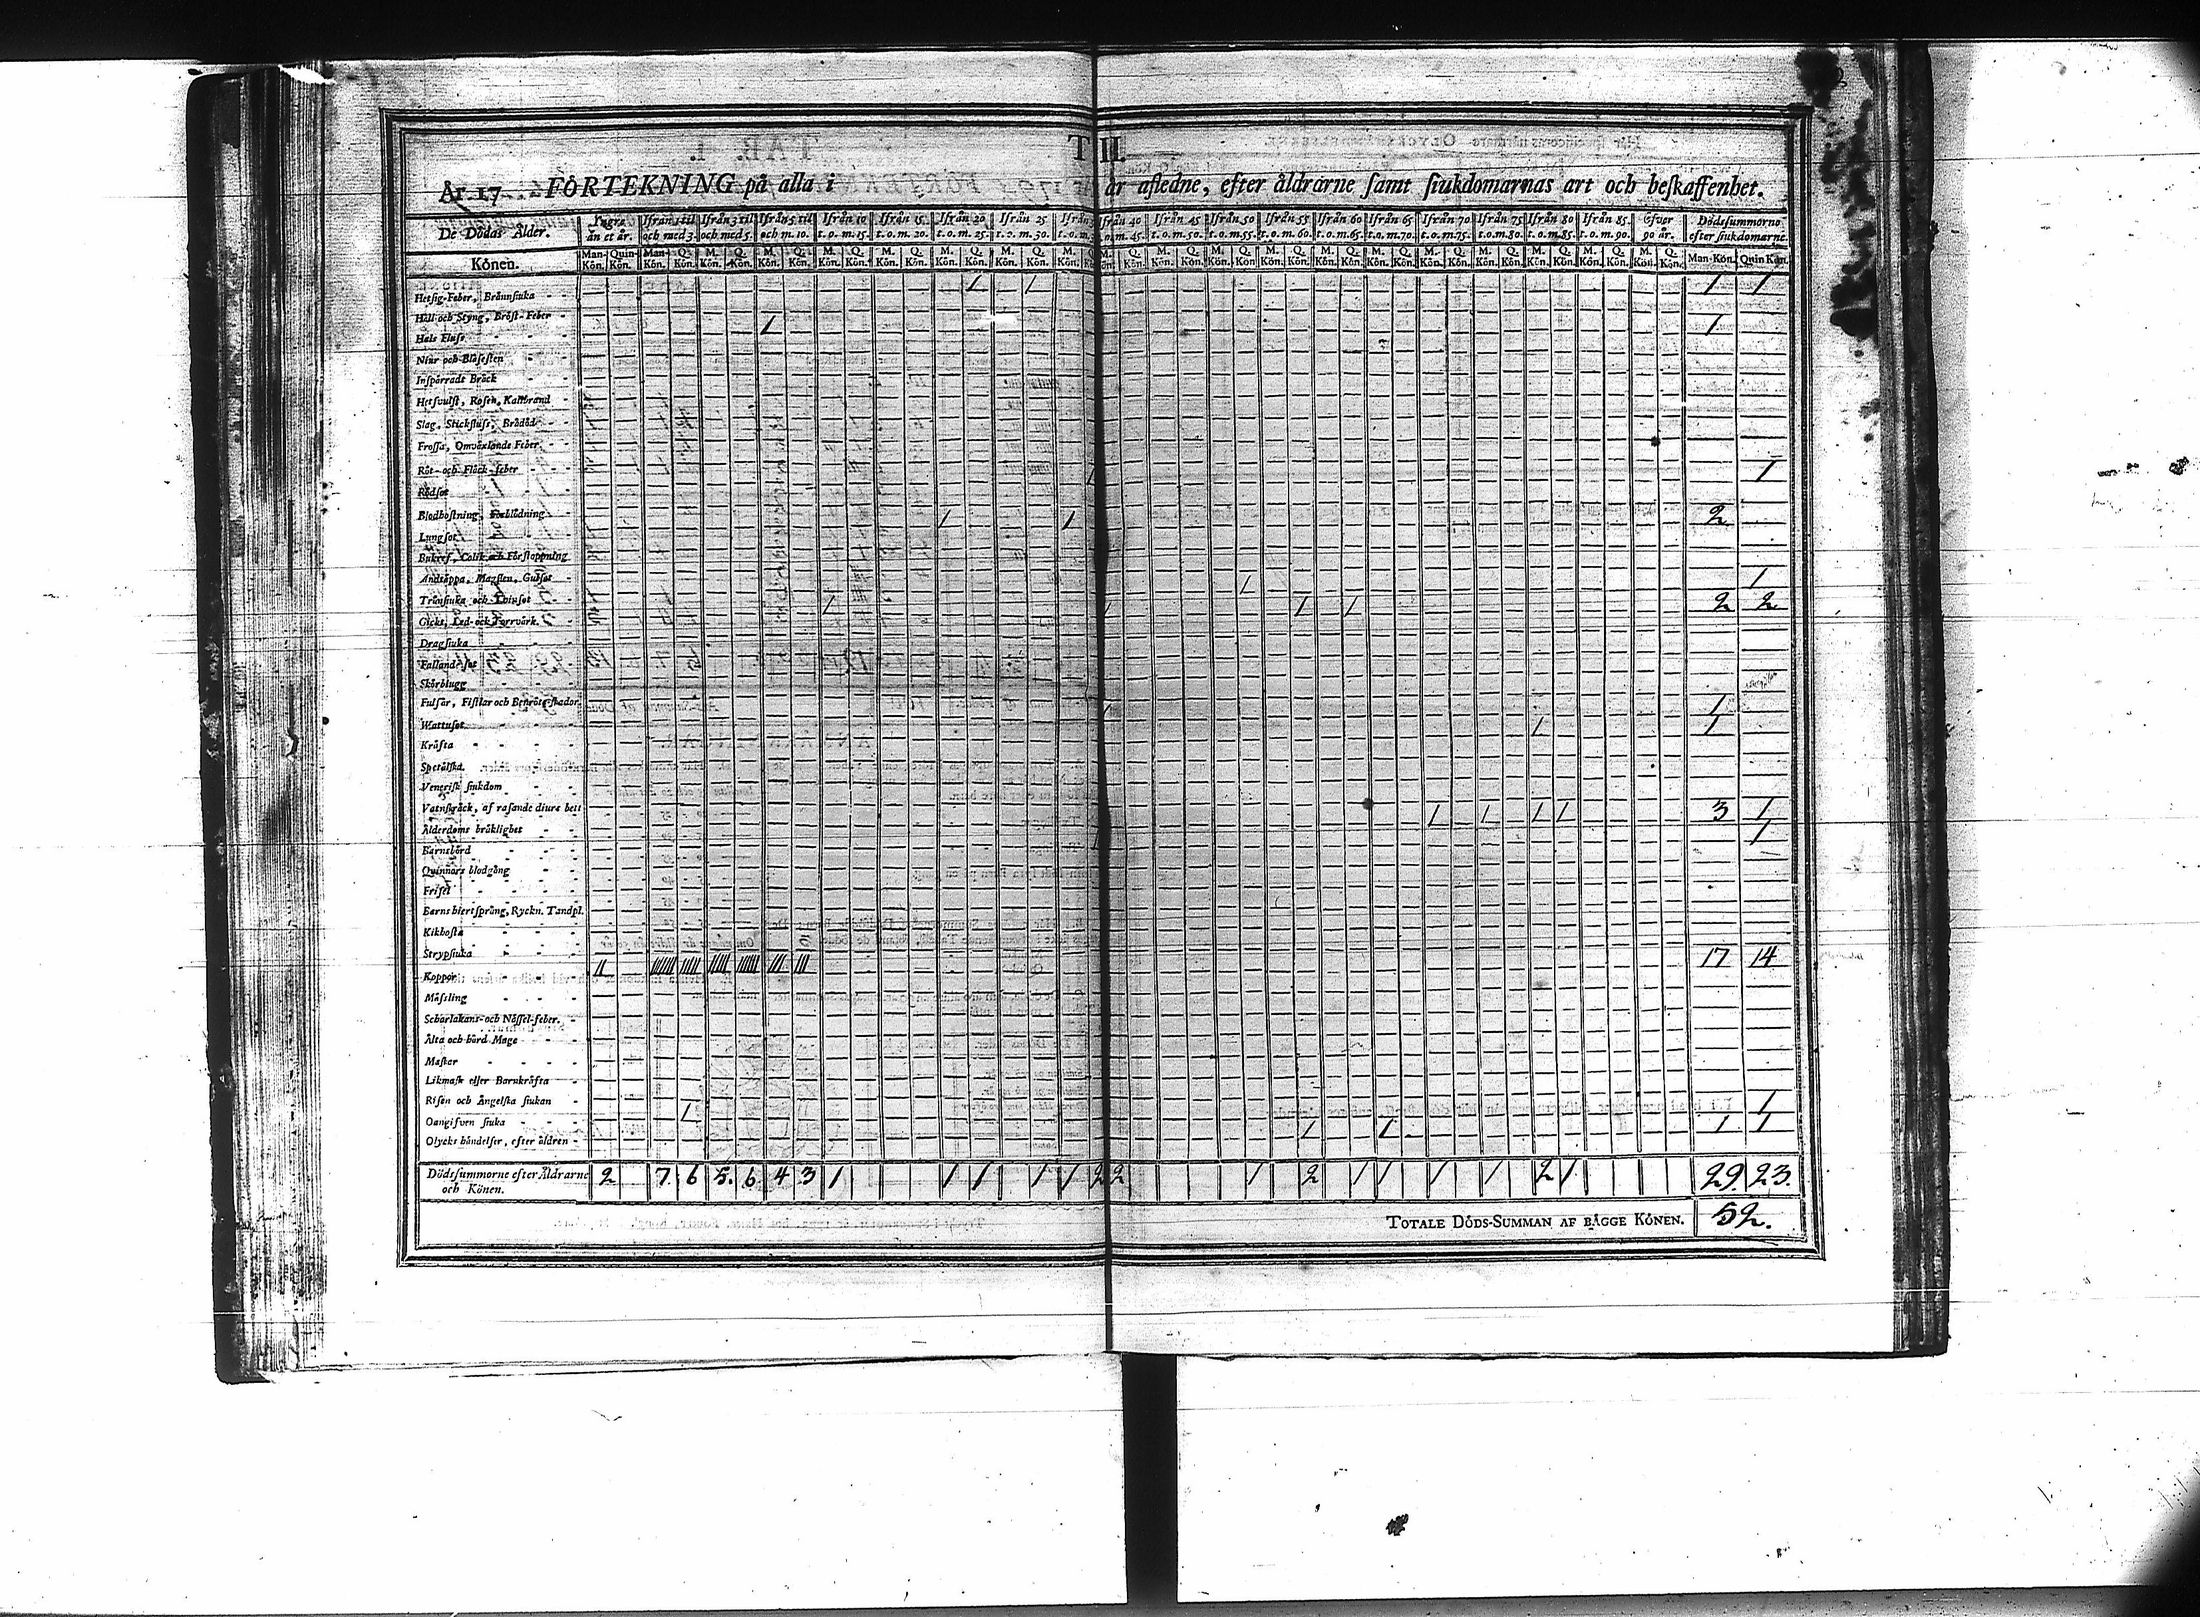 T II.
År 17 FÖRTEKNING på alla i år afledne, efter åldrarne samt siukdomarnas art och beskaffenhet.
De Dödas Ålder. Yngre än et år. Ifrån 1 til och med 3. Ifrån 3 til och med 5. Ifrån 5 til och m. 10. Ifrån 10 t. o. m. 15. Ifrån 15 t. o. m. 20. Ifrån 20 t. o. m. 25. Ifrån 25 t. o. m. 30. Ifrån 40 t. o. m. 45. Ifrån 45 t. o. m. 50. Ifrån 50 t. o. m. 55. Ifrån 55 t. o. m. 60. Ifrån 60 t. o. m. 65. Ifrån 65 t. o. m. 70. Ifrån 70 t. o. m. 75. Ifrån 75 t. o. m. 80. Ifrån 80 t. o. m. 85. Ifrån 85. t. o. m. 90. Öfver 90 år. Dödssummorne efter siukdomarne.
Könen. Man-Kön. Quin-Kön. Man-Kön. Q. Kön. M. Kön. Q. Kön. M. Kön. Q. Kön. M. Kön. Q. Kön. M. Kön. Q. Kön. M. Kön. Q. Kön. M. Kön. Q. Kön. M. Kön. M. Kön. Q. Kön. M. Kön. Q. Kön. M. Kön. Q. Kön. M. Kön. Q. Kön. M. Kön. Q. Kön. M. Kön. Q. Kön. M. Kön. Q. Kön. M. Kön. Q. Kön. M. Kön. Q. Kön. M. Kön. Q. Kön. M. Kön. Q. Kön. Man-Kön. Quin Kön.
Hetsig-Feber, Brännsiuka 1 1 1 1
Håll och Styng, Bröst-Feber
Hals Fluss 1 1
Niur och Blåsesten
Inspärradt Bråck
Hetsvulst, Rosen, Kallbrand
Slag, Stickfluss, Brådöd
Frossa, Omväxlande Feber
Röt- och Fläck-feber
Rödsot 1 1
Blodhostning, Förblödning
Lungsot 1 1 2
Bukref, Colik och Förstoppning
Andtäppa, Magsten, Gulsot
Trånsiuka och Tvinsot 1 1
Gickt, Led- och Torrvärk 1 1 1 1 2 2
Dragsiuka
Fallande sot
Skörbiugg
Fulsår, Fistlar och Benröte-skador
Wattusot 1 1
Kräfta 1 1
Spetälska
Venerisk siukdom
Vatnskräck, af rasande diurs bett
Ålderdoms bräklighet 1 1 1 1 3 1
Barnsbörd 1 1
Qvinnors blodgång
Frisel
Barns hiertsprång, Ryckn. Tandpl.
Kikhosta
Strypsiuka
Koppor 17 14
Mässling
Scharlakans- och Nässel-feber.
Älta och hård Mage
Maskar
Likmask eller Barnkräfta
Risen och Ängelska siukan
Oangifven siuka 1 1
Olycks händelser, efter åldren 1 1 1 1
Dödssummorne efter Åldrarne och Könen. 2 7 6 5. 6 4 3 1 1 1 1 1 2 2 1 2 1 1 1 1 2 1 29. 23.
TOTALE DÖDS-SUMMAN AF BÄGGE KÖNEN. 52.